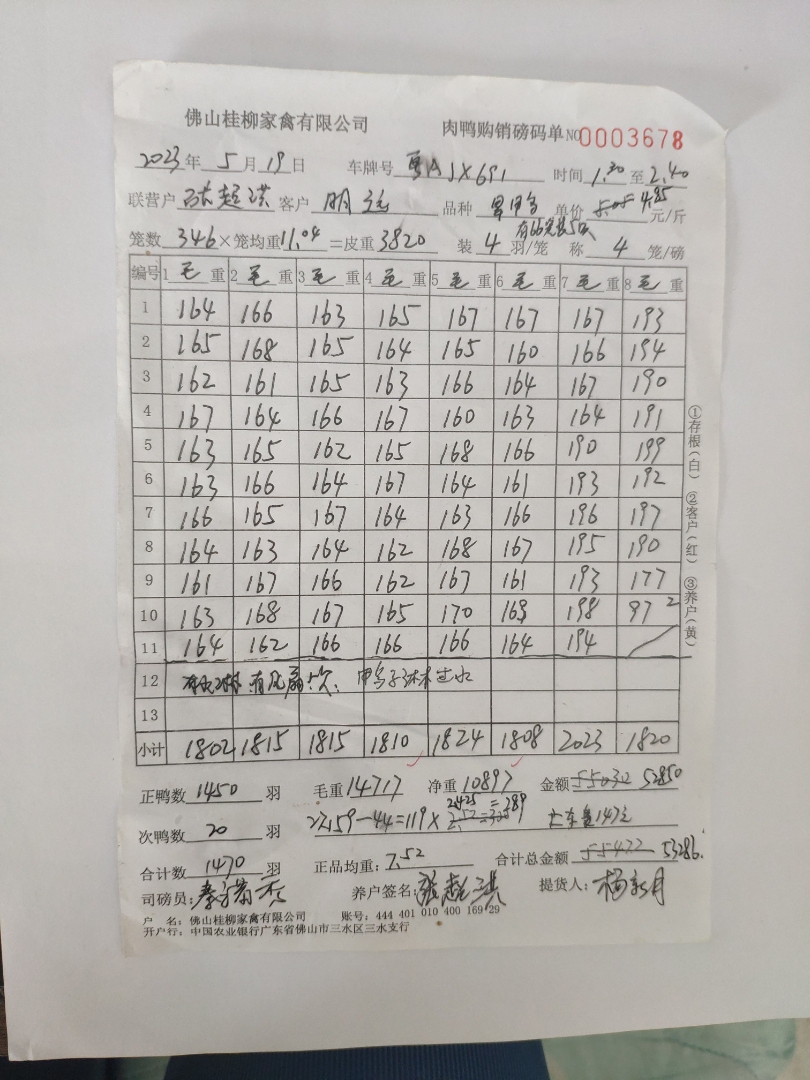 佛山桂柳家禽有限公司 肉鸭购销磅码单 NO 0003678
2023年 5月 19日 车牌号 粤AJX691 时间 1.30 至 2.40
联营户 张超洪 客户 明 品种 单价 5.05 4.95 元/斤
笼数 346 ×笼均重 11.04 =皮重 3820 装 4 羽/笼 称 4 笼/磅
编号 1 毛 重 2 毛 重 3 毛 重 4 毛 重 5 毛 重 6 毛 重 7 毛 重 8 毛 重
1 164 166 163 165 167 167 167 193
2 165 168 165 164 165 160 166 194
3 162 161 165 163 166 164 167 190
4 167 164 166 167 160 163 164 191
5 163 165 162 165 168 166 190 199
6 163 166 164 167 164 161 193 192
7 166 165 167 164 163 166 196 197
8 164 163 164 162 168 167 195 190
9 161 167 166 162 167 161 193 177
10 163 168 167 165 170 165 198 97 2
11 164 162 166 166 166 164 194
12 有风扇
13
小计 1802 1815 1815 1810 1824 1808 2023 1820
①存根(白) ②客户(红) ③养户(黄)
正鸭数 1450 羽 毛重 14717 净重 10897 金额 55032 53850
次鸭数 20 羽 27.159-44=119×
合计数 1470 羽 正品均重: 7.52 合计总金额 55422 53286
司磅员: 养户签名: 张超洪 提货人: 杨
户 名: 佛山桂柳家禽有限公司 账号: 444 401 010 400 169 29
开户行: 中国农业银行广东省佛山市三水区三水支行